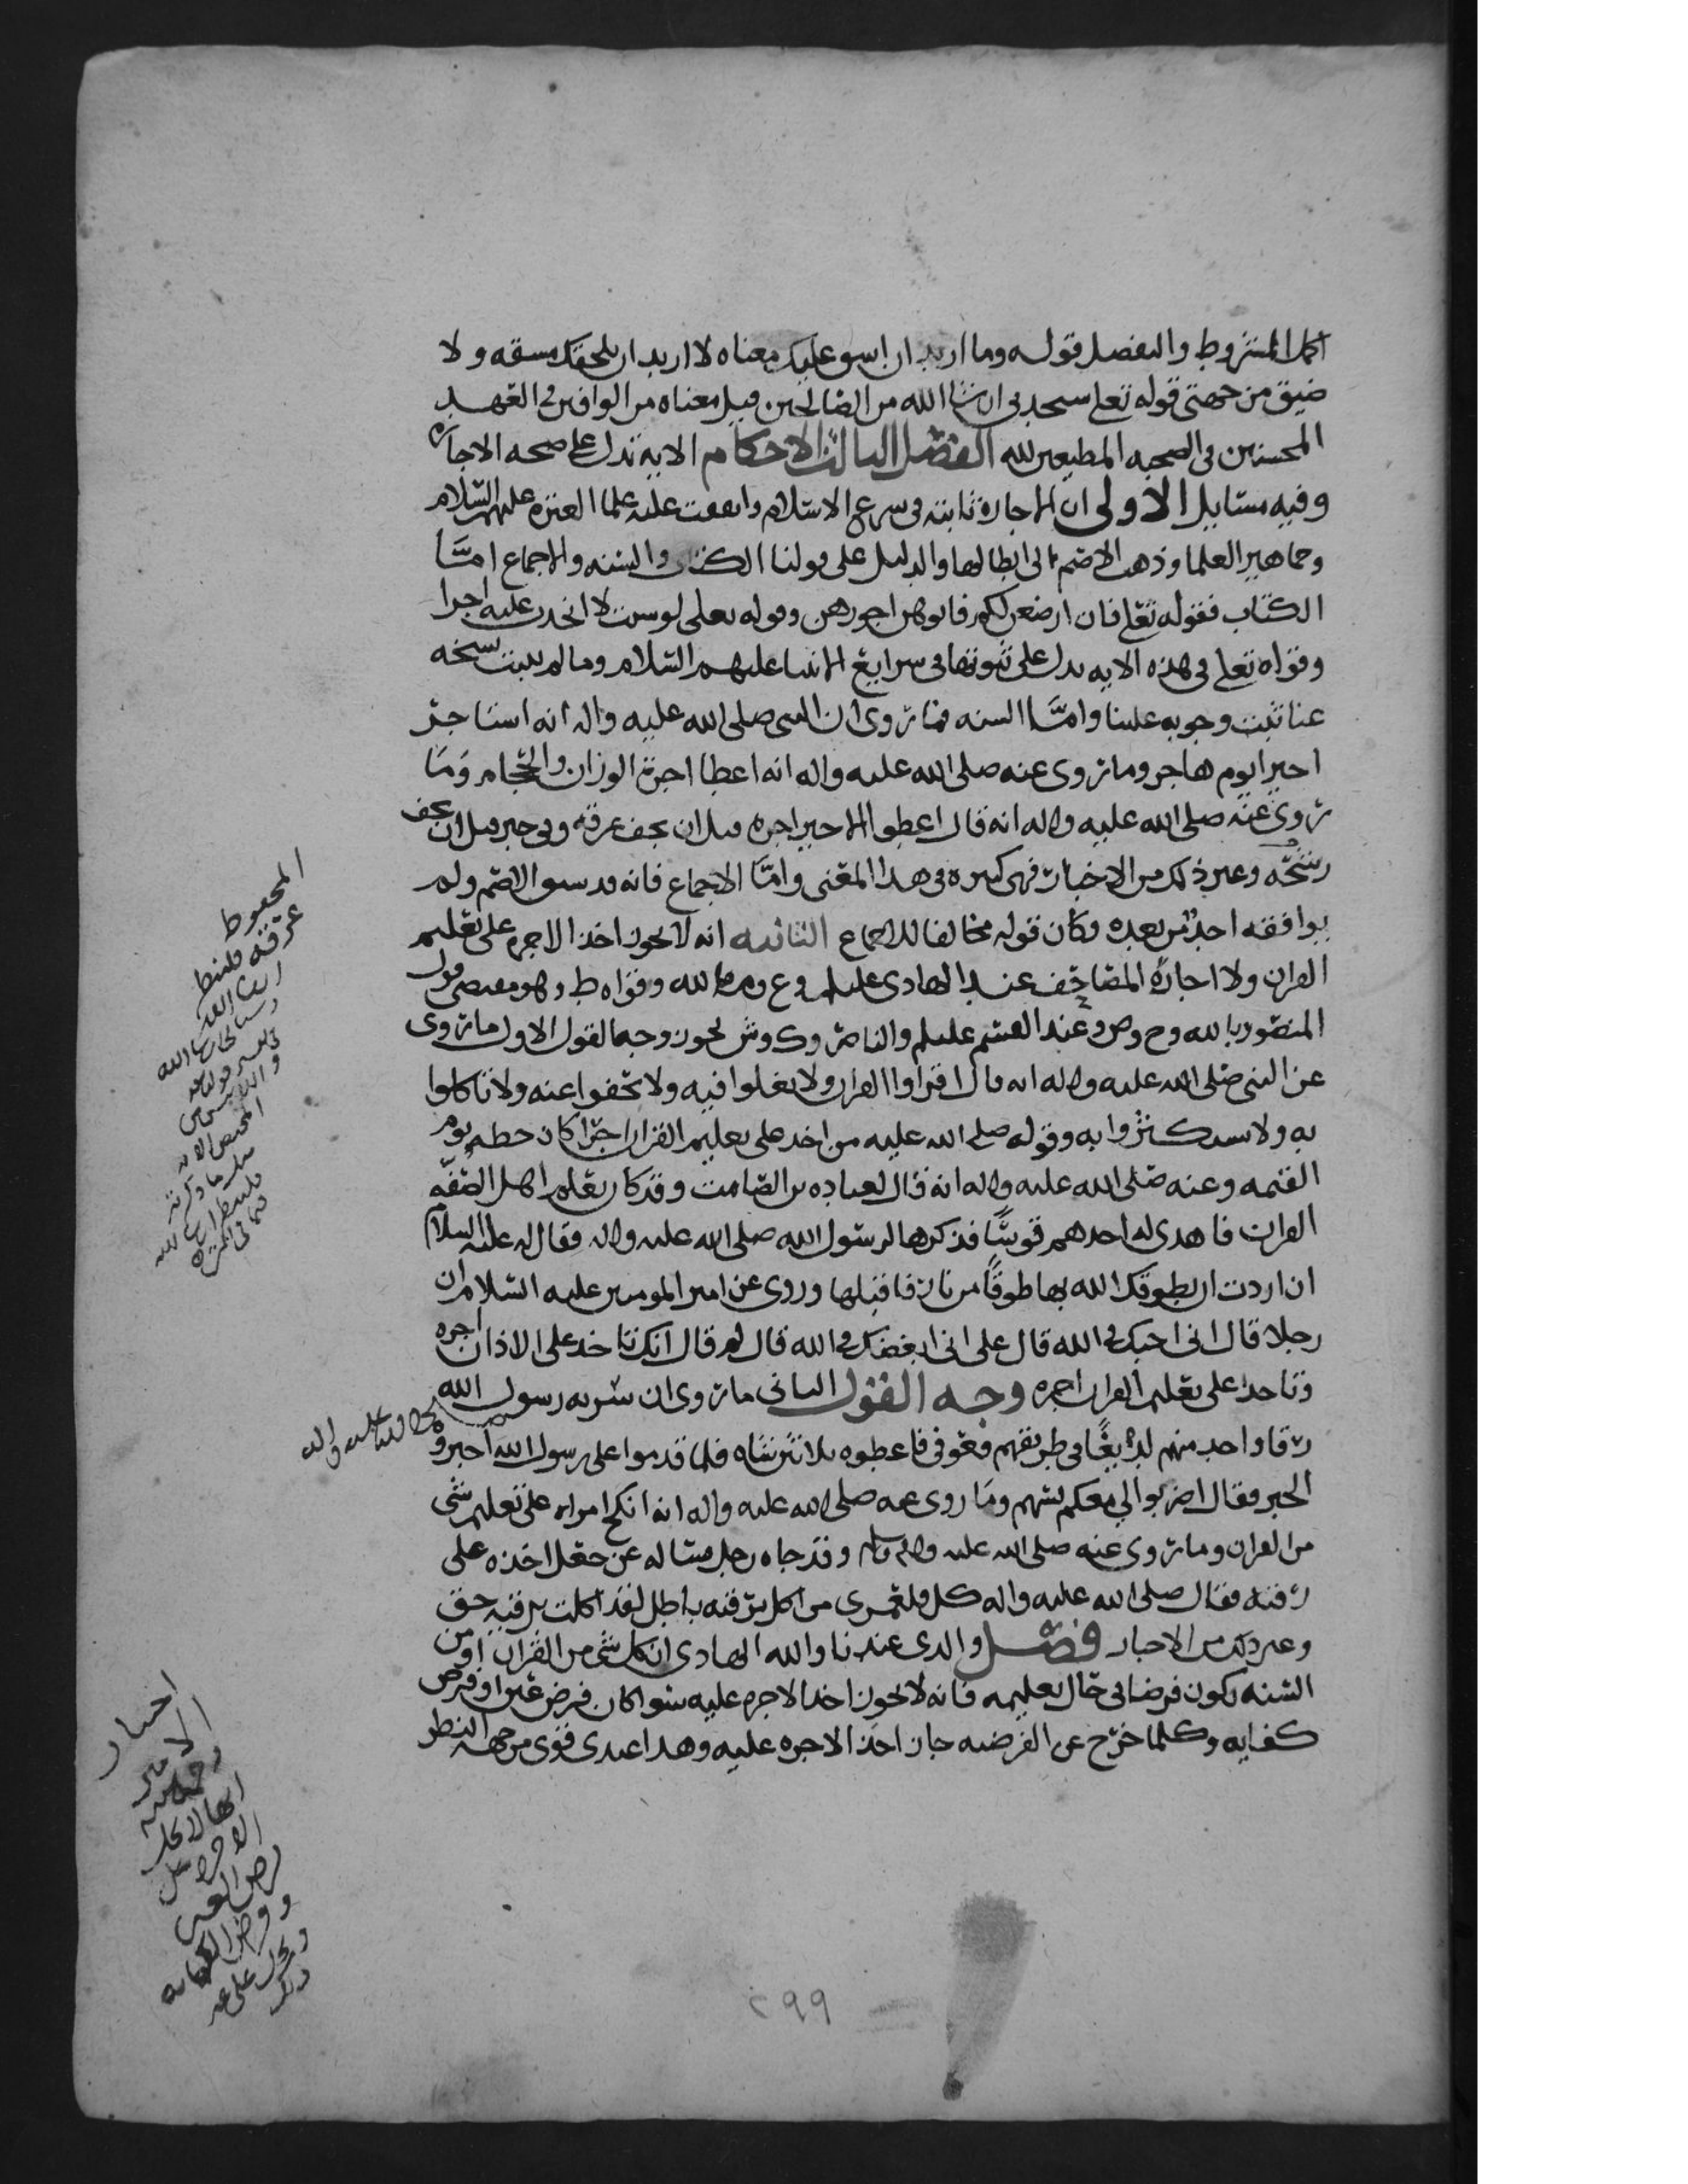 اكمل المشروط والتفضل قوله وما اريد ان اشق عليك معناه لا اريد ان يلحقك مشقه ولا
ضيق من جهتي قوله تعلى ستجدني ان شا الله من الصالحين قيل معناه من الوافين في العهد
المحسنين في الصحبه المطيعين لله الفصل الثالث الاحكام الايه تدل على صحه الاجاره
وفيه مسايل الاولى ان الاجاره ثابته في شرع الاسلام واتفقت عليه علما العتره عليهم السلام
وجماهير العلما وذهب الاصم الى ابطالها والدليل على قولنا الكتاب والسنه والاجماع امّا
الكتاب فقوله تعلى فان ارضعن لكم فاتوهن اجورهن وقوله تعلى لو شئت لاتخذت عليه اجرا
وقوله تعلى في هذه الايه يدل على ثبوتها في شرايع الانبيا عليهم السلام وما لم يثبت نسخه
عنا ثبت وجوبه علينا وامّا السنه فما روي ان النبي صلى الله عليه واله انه استاجر
اجيرا يوم هاجر وما روي عنه صلى الله عليه واله انه اعطا اجرة الوزان والحجام وما
روي عنه صلى الله عليه واله انه قال اعطوا الاجير اجره قبل ان يجف عرقه وفي خبر قبل ان يجف
رشحه وغير ذلك من الاخبار فهي كثيره في هذا المعنى وامّا الاجماع فانه قد سبق الاصم ولم
يوافقه احد من بعده وكان قوله مخالفا للاجماع الثانيه انه لا يجوز اخذ الاجره على تعليم
القران ولا اجارة المصاحف عند الهادي عليلم وع وم بالله وقواه ط وهو مقتضى قول
المنصور بالله وح وص وعند القسم عليلم والناصر وك وش يجوز وجه القول الاول ما روي
عن النبي صلى الله عليه واله انه قال اقراوا القران ولا تغلوا فيه ولا تجفوا عنه ولا تاكلوا
به ولا تستكثروا به وقوله صلى الله عليه من اخذ على تعليم القران اجرا كان حظه يوم
القيمه وعنه صلى الله عليه واله انه قال لعباده بن الصامت وقد كان يعلم اهل الصفّه
القران فاهدى له احدهم قوسًا فذكرها لرسول الله صلى الله عليه واله فقال له عليه السلام
ان اردت ان يطوقك الله بها طوقًا من نار فاقبلها وروي عن امير المومنين عليه السلام ان
رجلا قال اني احبك في الله قال علي اني ابغضك في الله قال لم قال انك تاخذ على الاذان اجره
وتاخذ على تعليم القران اجره وجه القول الثاني ما روي ان سريه رسول الله
صلى الله عليه واله
رقا واحد منهم لديغًا في طريقهم فعوفي فاعطوه ثلاثين شاه فلما قدموا على رسول الله اخبروه
الخبر فقال اضربوا لي معكم بسهم وما روي عنه صلى الله عليه واله انه انكح امراه على تعليم شي
من القران وما روي عنه صلى الله عليه واله وقد جاه رجل يساله عن جعل اخذه على
رقيه فقال صلى الله عليه واله كل فلعمري من اكل برقيه باطل لقد اكلت برقيه حق
وغير ذلك من الاخبار فصل والذي عندنا والله الهادي ان كل شي من القران او من
السنه يكون فرضا في حال تعليمه فانه لا يجوز اخذ الاجره عليه سوا كان فرض عين او فرض
كفايه وكلما خرج عن الفرضيه جاز اخذ الاجره عليه وهذا عندي قوي من جهه النظر
المحفوظ
عرقه فلينظر
ان شا الله
اختيار
الامير
رحمه الله
انها لا تحل
الاجره على
فرض العين
وفرض الكفايه
وتحل على غير
ذلك
٢٩٩